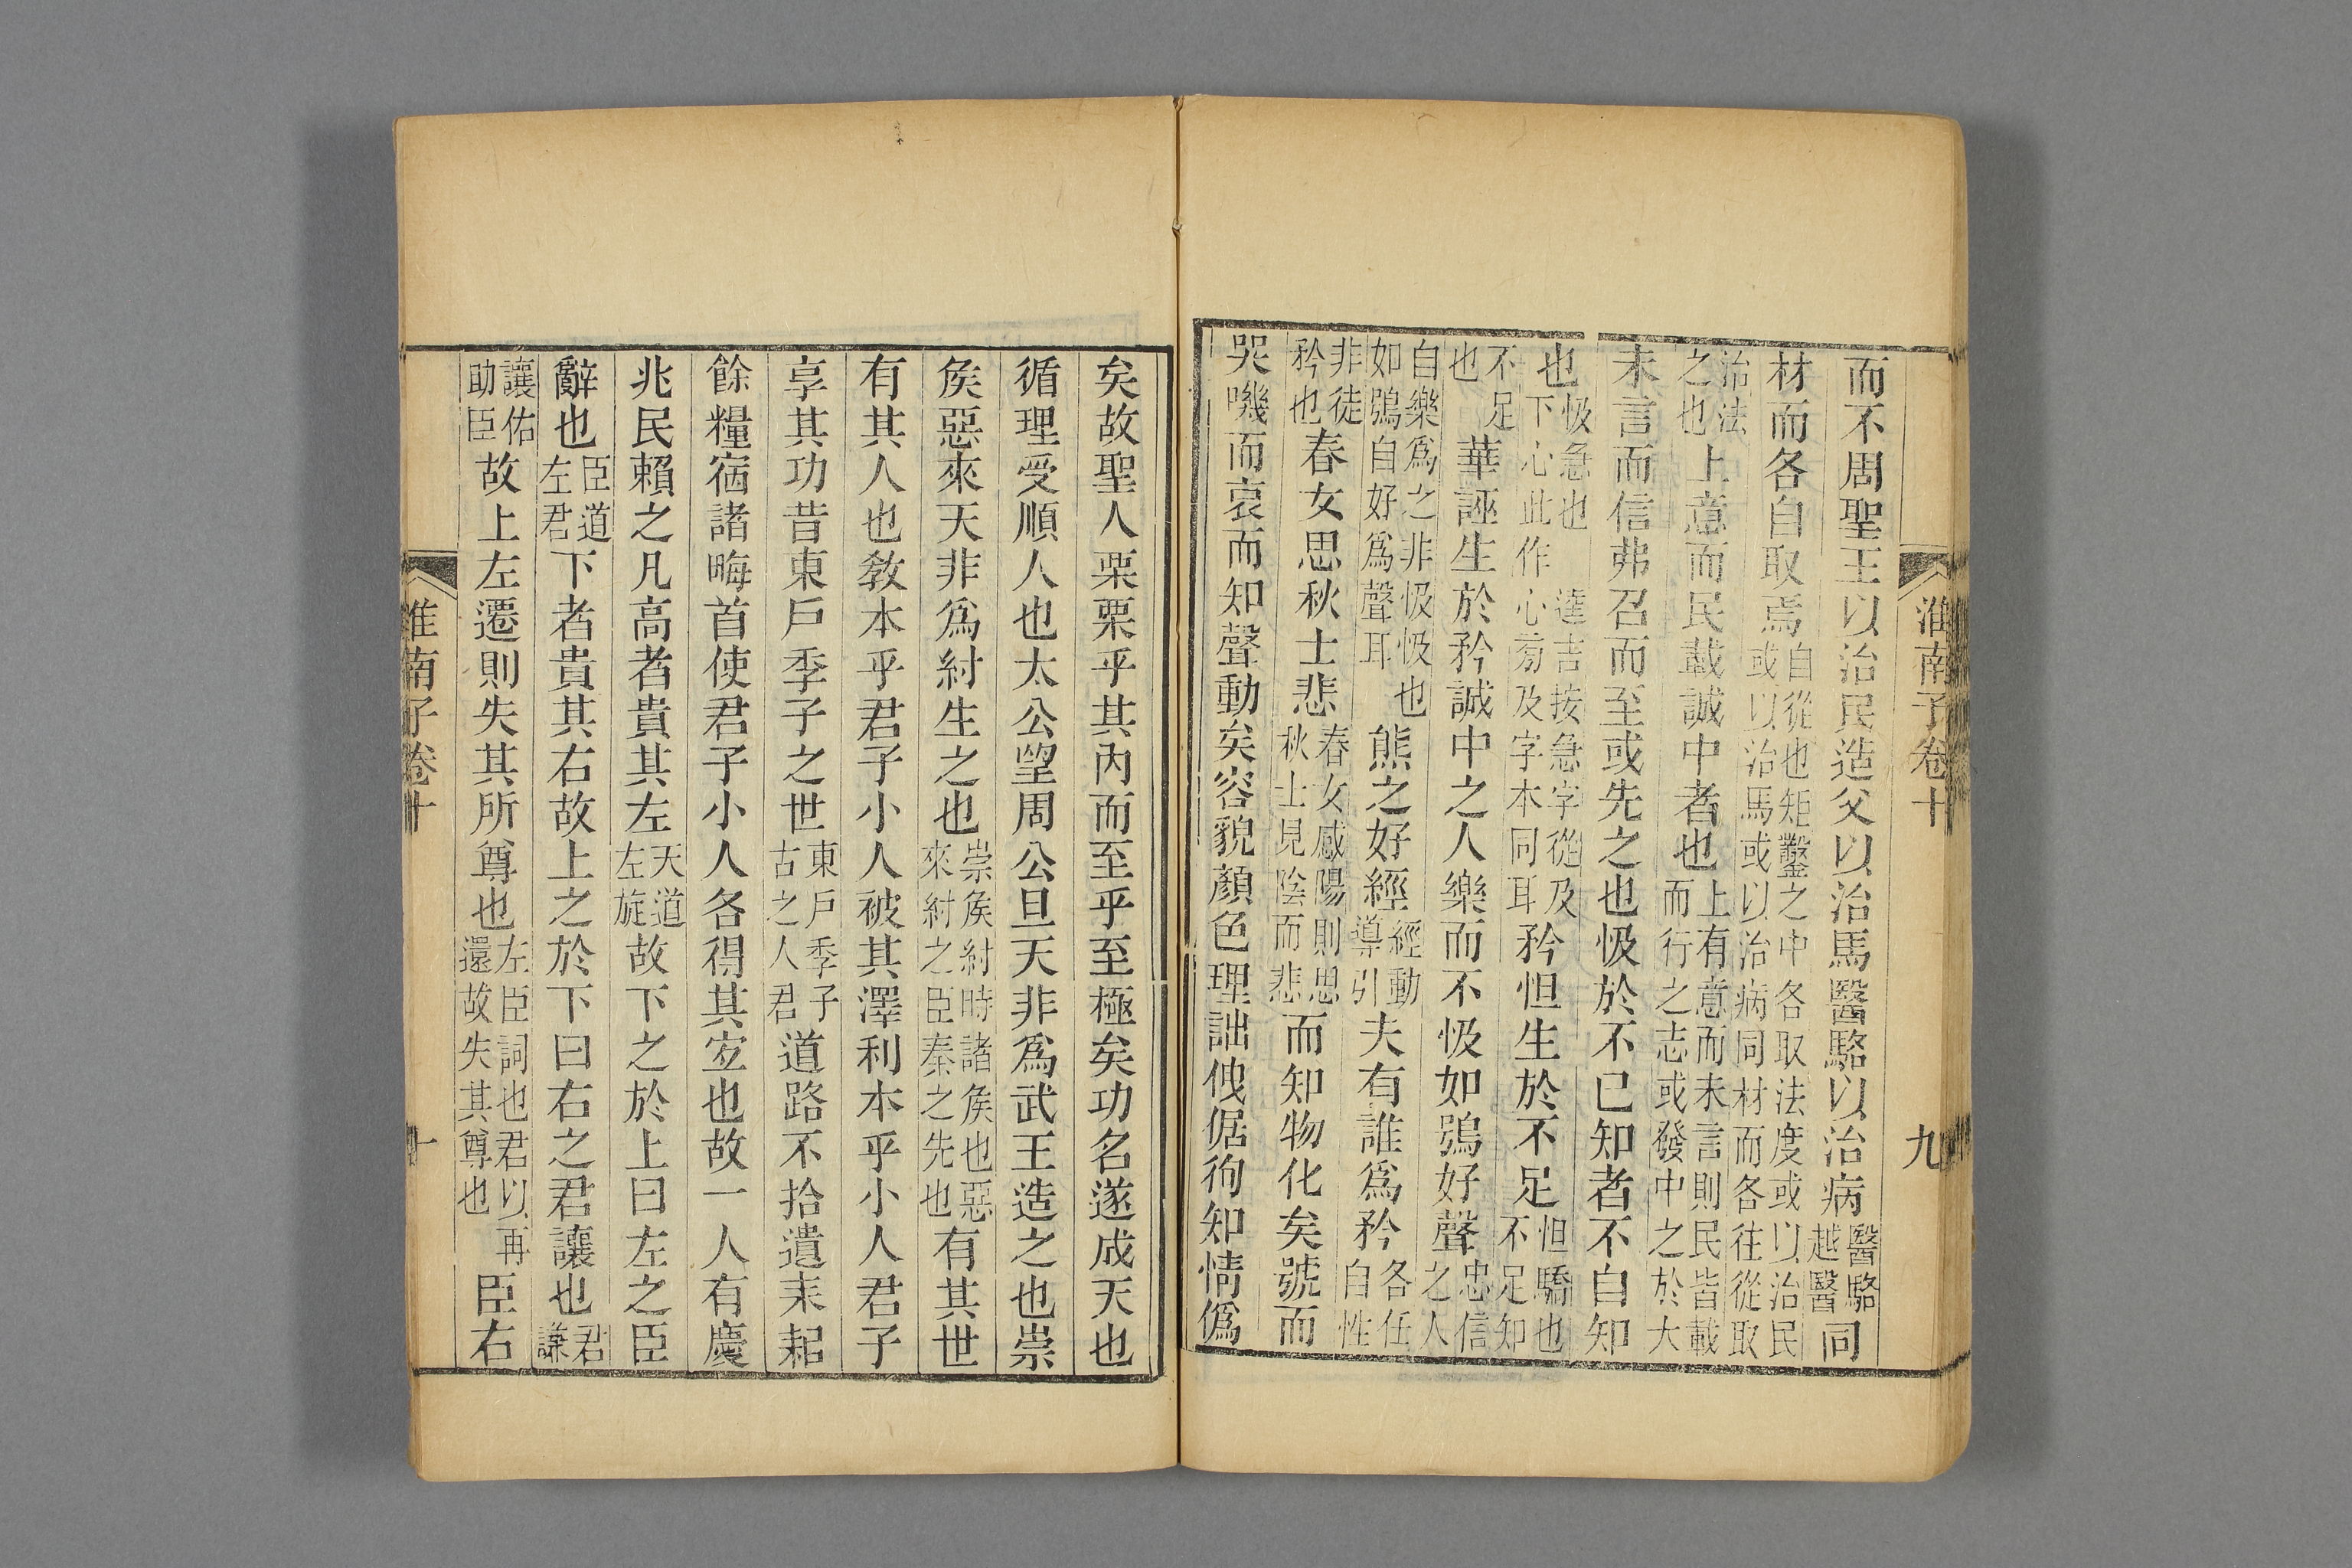 淮南子卷十　九
而不周聖王以治民造父以治馬醫駱以治病醫駱越醫同
材而各自取焉自從也矩鑿之中各取法度或以治民或以治馬或以治病同材而各往從取
治法之也上意而民載誠中者也上有意而未言則民皆載而行之志或發中之於大
未言而信弗召而至或先之也忣於不已知者不自知
也忣急也逵吉按急字從及下心此作心芴及字本同耳矜怛生於不足怛驕也不足知
不足也華誣生於矜誠中之人樂而不忣如鴞好聲忠信之人
自樂爲之非忣忣也如鴞自好爲聲耳熊之好經經動導引夫有誰爲矜各任自性
非徒矜也春女思秋士悲春女感陽則思秋士見陰而悲而知物化矣號而
哭嘰而哀而知聲動矣容貌顏色理詘倨徇知情僞
矣故聖人栗栗乎其內而至乎至極矣功名遂成天也
循理受順人也太公望周公旦天非爲武王造之也崇
矦惡來天非爲紂生之也崇矦紂時諸矦也惡來紂之臣秦之先也有其世
有其人也敎本乎君子小人被其澤利本乎小人君子
享其功昔東戶季子之世東戶季子古之人君道路不拾遺耒耜
餘糧宿諸畮首使君子小人各得其宐也故一人有慶
兆民賴之凡高者貴其左天道左旋故下之於上曰左之臣
辭也臣道左君下者貴其右故上之於下曰右之君讓也君謙
讓佑助臣故上左遷則失其所尊也左臣詞也君以再還故失其尊也臣右
淮南子卷十　十